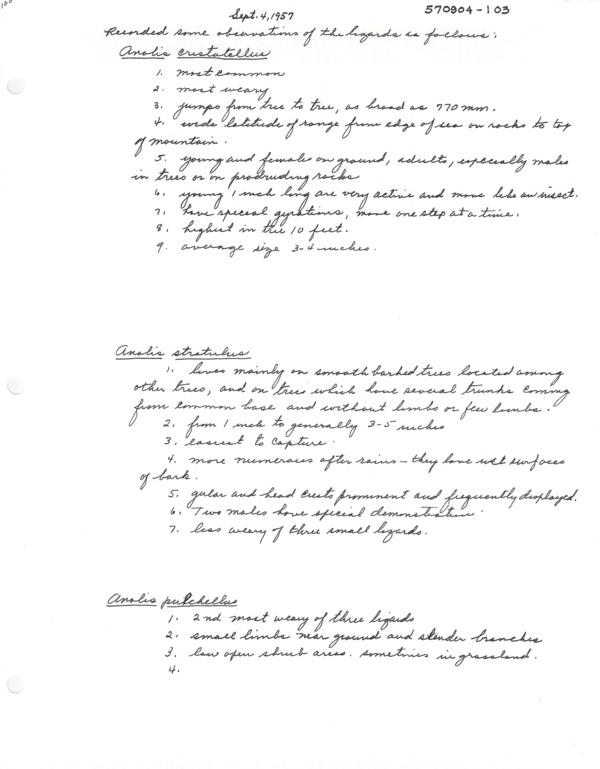 Sept. 4, 1957
570904-103
Recorded some observations of the lizards as follows:
Anolis cristatellus
1. most common
2. most weary
3. jumps from tree to tree, as broad as 770 mm.
4. wide latitude of range from edge of sea on rocks to top
of mountain.
5. young and females on ground, adults, especially males
in trees or on protruding rocks
6. young 1 inch long are very active and move like an insect.
7. have special gyrations, move one step at a time.
8. highest in tree 10 feet.
9. average size 3-4 inches.
Anolis stratulus
1. lives mainly on smooth barked trees located among
other trees, and on trees which have several trunks coming
from common base and without limbs or few limbs.
2. from 1 inch to generally 3-5 inches
3. easiest to capture.
4. more numerous after rains - they love wet surfaces
of bark.
5. gular and head crests prominent and frequently displayed.
6. Two males have special demonstration.
7. less weary of three small lizards.
Anolis pulchellus
1. 2nd most weary of three lizards
2. small limbs near ground and slender branches
3. low open shrub areas. sometimes in grassland.
4.